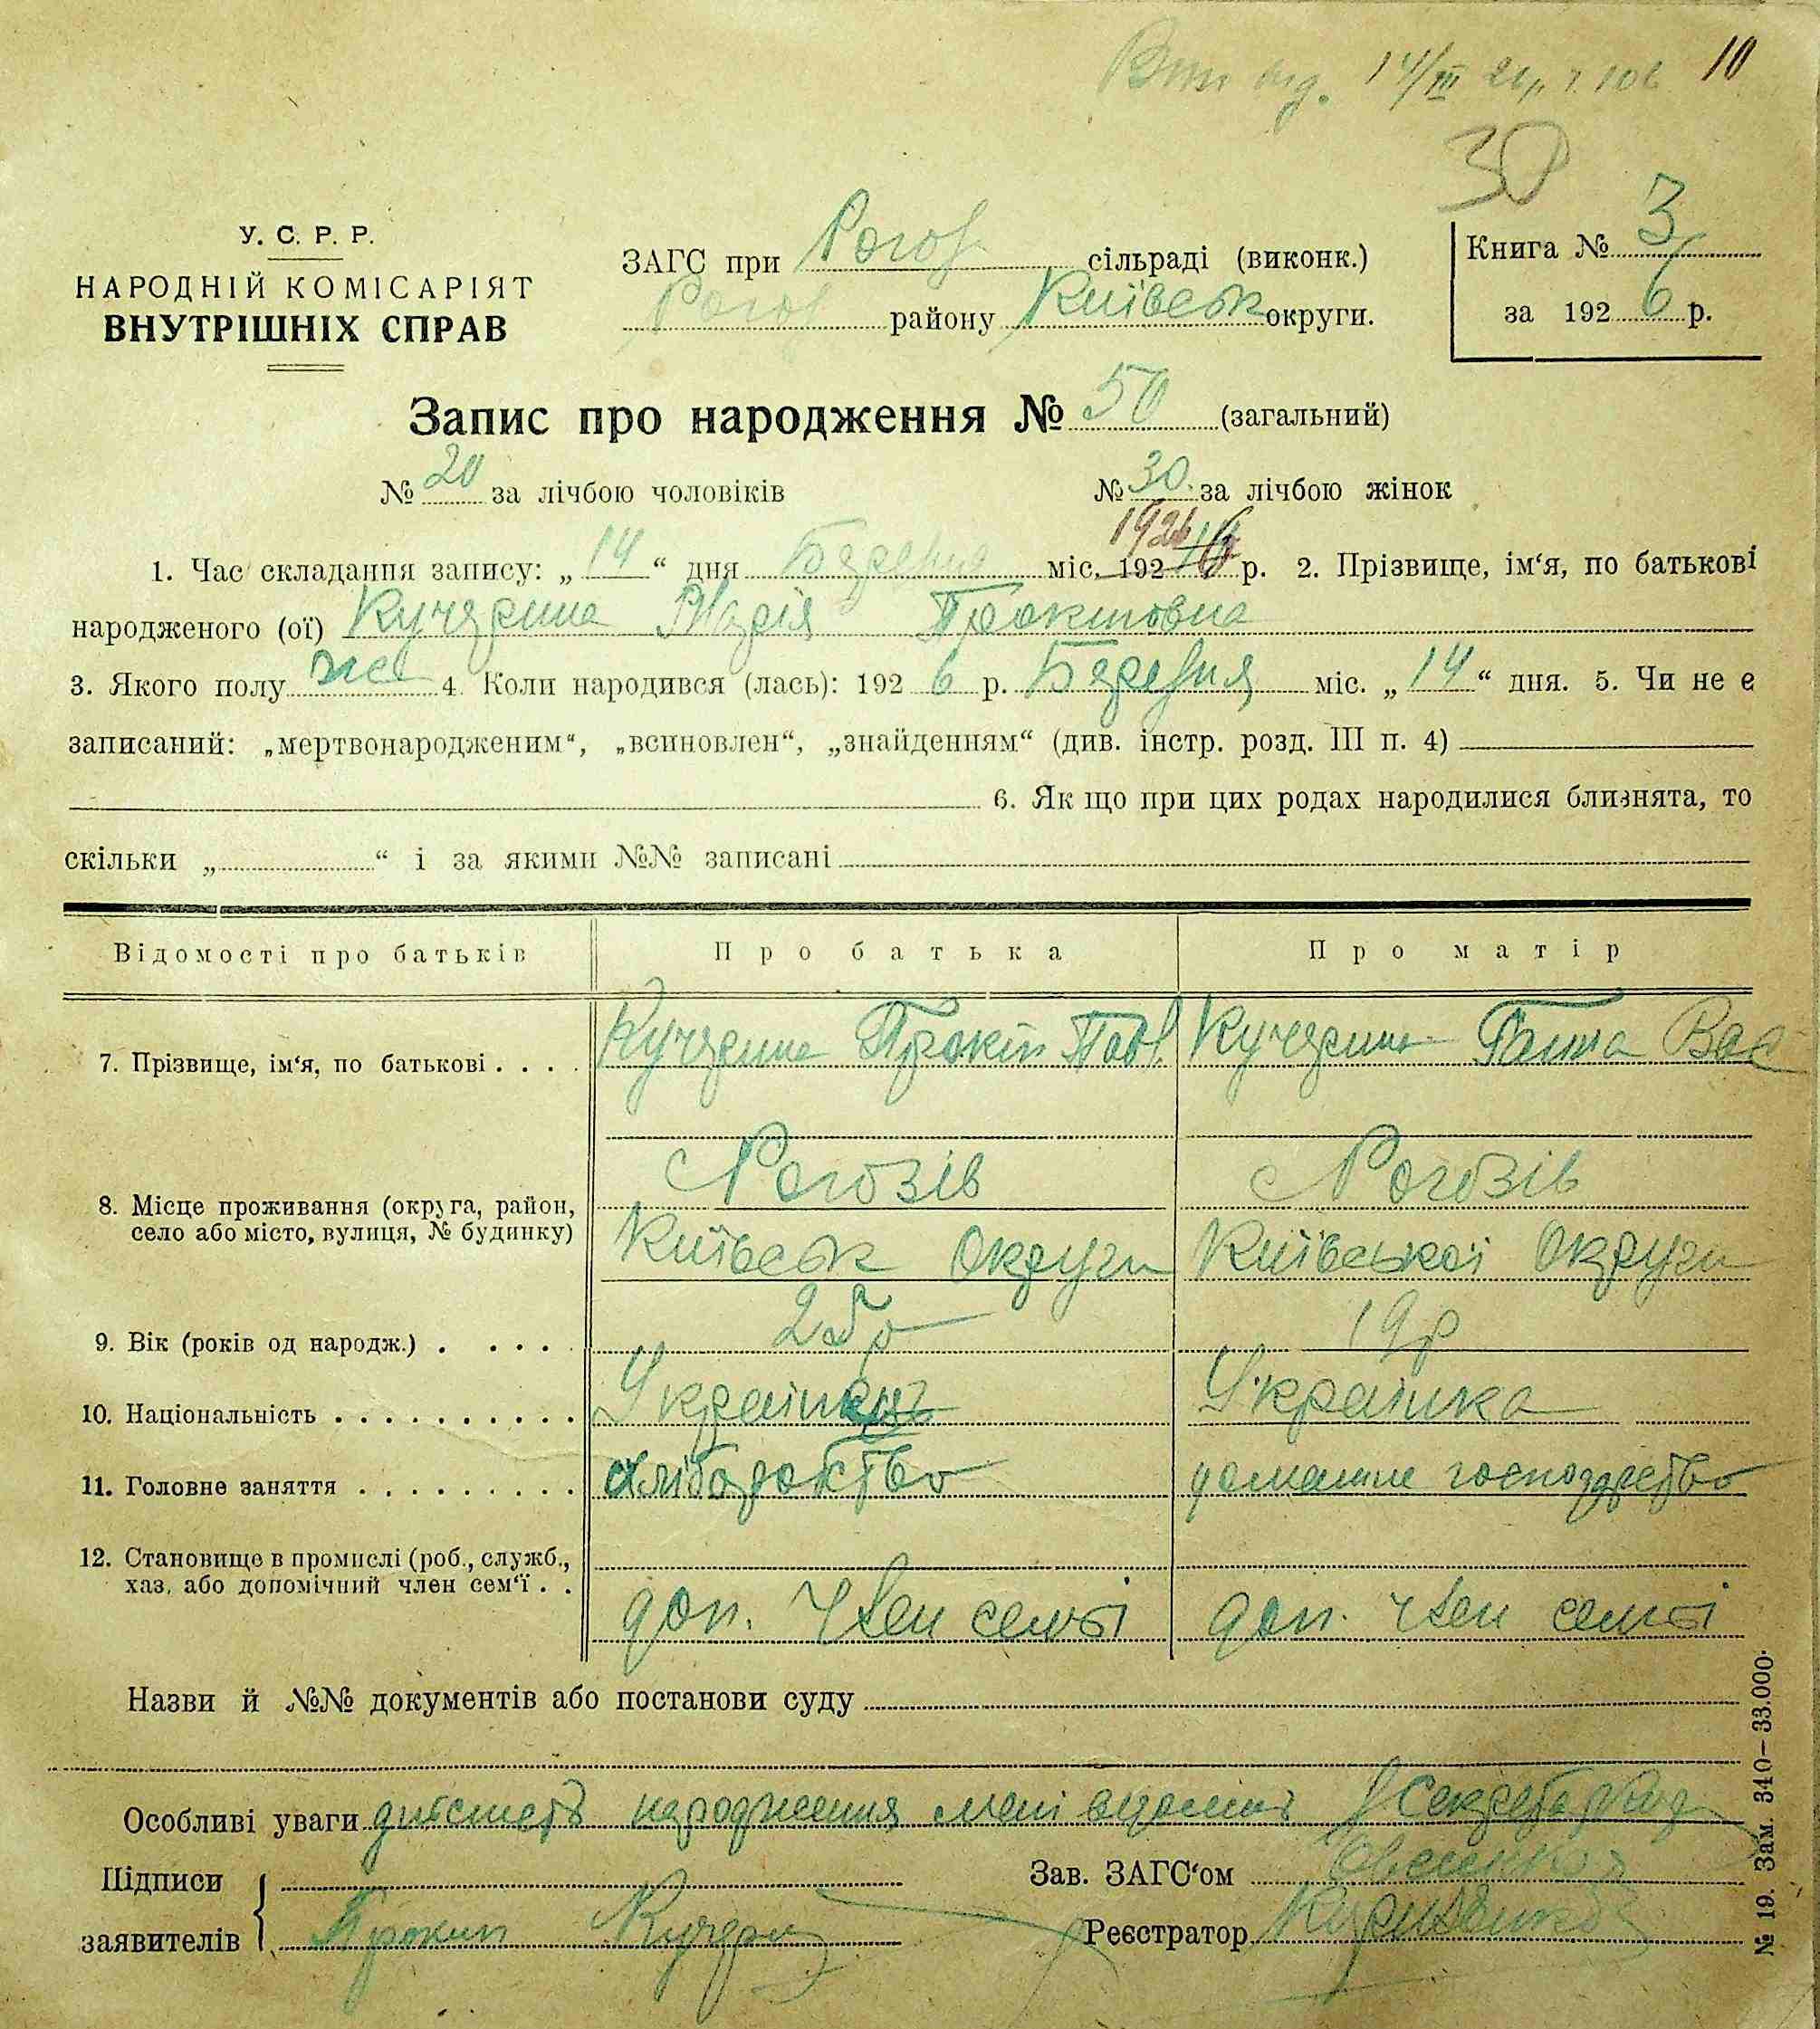 14/III 10
30
У. С. Р. Р.
НАРОДНІЙ КОМІСАРІЯТ
ВНУТРІШНІХ СПРАВ
ЗАГС при Рогоз сільраді (виконк.)
Рогоз району Київськ округи.
Книга № 3
за 1926 р.
Запис про народження № 50 (загальний)
№ 20 за лічбою чоловіків № 30. за лічбою жінок
1926
1. Час складання запису: „14“ дня Березня міс. 192 р. 2. Прізвище, ім‘я, по батькові
народженого (ої) Кучерина Марія Прокиповна
3. Якого полу же 4. Коли народився (лась): 1926 р. Березня міс. „14“ дня. 5. Чи не є
записаний: „мертвонародженим“, „всиновлен“, „знайденням“ (див. інстр. розд. III п. 4)
6. Як що при цих родах народилися близнята, то
скільки „ “ і за якими №№ записані
Відомості про батьків Про батька Про матір
7. Прізвище, ім‘я, по батькові . . . . Кучерина Прокіп Павл Кучерина Ганна Вас
8. Місце проживання (округа, район, село або місто, вулиця, № будинку)
с Рогозів с Рогозів
Київськ Округи Київської Округи
9. Вік (років од народж.) . . . . . 25р 19р
10. Національність . . . . . . . . . . Українец Українка
11. Головне заняття . . . . . . . . . хліборобство домашне господарство
12. Становище в промислі (роб., служб.,
хаз, або допомічний член сем‘ї . .
доп. член семї доп. член семї
Назви й №№ документів або постанови суду
Особливі уваги дійсність народження мені відомий Секретарь
Підписи
заявителів Прокип Кучерин
Зав. ЗАГС‘ом
Реєстратор
№ 19. Зам. 340—33.000.